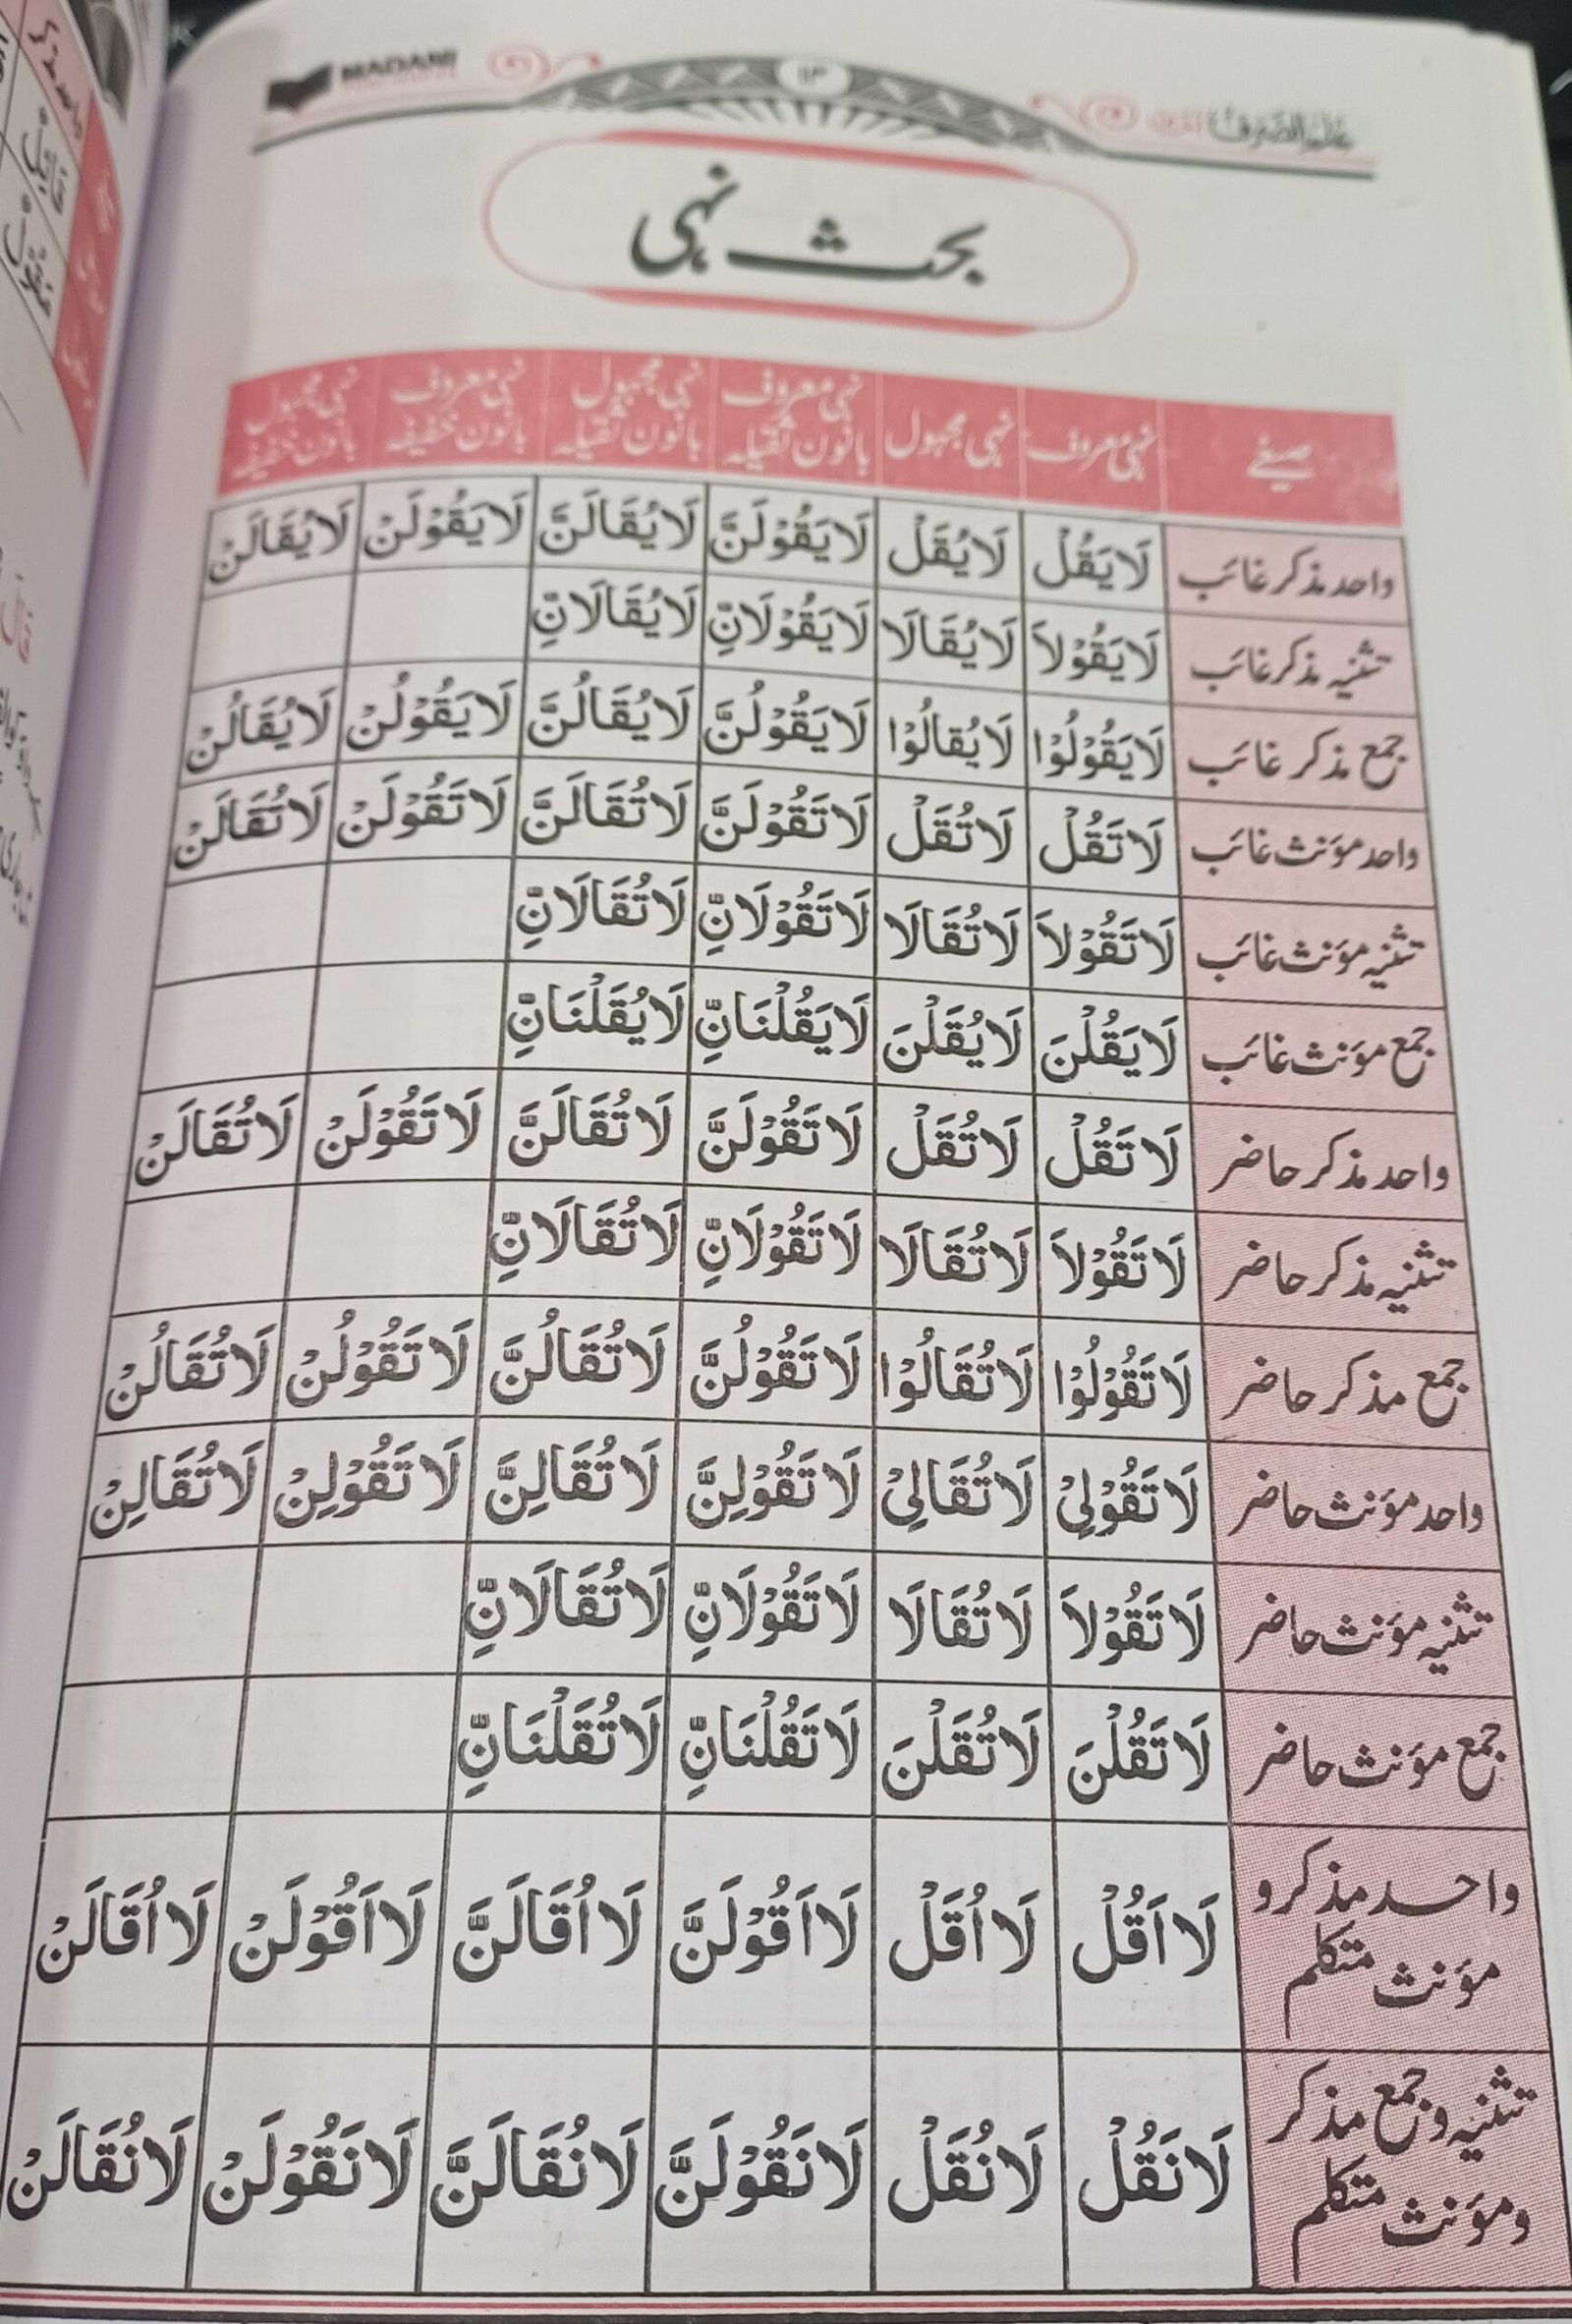 MADANI
۱۳
علم الصرف
بحث نہی
صیغے نہی معروف نہی مجہول نہی معروف بانون ثقیلہ نہی مجہول بانون ثقیلہ نہی معروف بانون خفیفہ نہی مجہول بانون خفیفہ
واحد مذکر غائب لَایَقُلْ لَایُقَلْ لَایَقُوْلَنَّ لَایُقَالَنَّ لَایَقُوْلَنْ لَایُقَالَنْ
تثنیہ مذکر غائب لَایَقُوْلَا لَایُقَالَا لَایَقُوْلَانِّ لَایُقَالَانِّ
جمع مذکر غائب لَایَقُوْلُوْا لَایُقَالُوْا لَایَقُوْلُنَّ لَایُقَالُنَّ لَایَقُوْلُنْ لَایُقَالُنْ
واحد مؤنث غائب لَاتَقُلْ لَاتُقَلْ لَاتَقُوْلَنَّ لَاتُقَالَنَّ لَاتَقُوْلَنْ لَاتُقَالَنْ
تثنیہ مؤنث غائب لَاتَقُوْلَا لَاتُقَالَا لَاتَقُوْلَانِّ لَاتُقَالَانِّ
جمع مؤنث غائب لَایَقُلْنَ لَایُقَلْنَ لَایَقُلْنَانِّ لَایُقَلْنَانِّ
واحد مذکر حاضر لَاتَقُلْ لَاتُقَلْ لَاتَقُوْلَنَّ لَاتُقَالَنَّ لَاتَقُوْلَنْ لَاتُقَالَنْ
تثنیہ مذکر حاضر لَاتَقُوْلَا لَاتُقَالَا لَاتَقُوْلَانِّ لَاتُقَالَانِّ
جمع مذکر حاضر لَاتَقُوْلُوْا لَاتُقَالُوْا لَاتَقُوْلُنَّ لَاتُقَالُنَّ لَاتَقُوْلُنْ لَاتُقَالُنْ
واحد مؤنث حاضر لَاتَقُوْلِیْ لَاتُقَالِیْ لَاتَقُوْلِنَّ لَاتُقَالِنَّ لَاتَقُوْلِنْ لَاتُقَالِنْ
تثنیہ مؤنث حاضر لَاتَقُوْلَا لَاتُقَالَا لَاتَقُوْلَانِّ لَاتُقَالَانِّ
جمع مؤنث حاضر لَاتَقُلْنَ لَاتُقَلْنَ لَاتَقُلْنَانِّ لَاتُقَلْنَانِّ
واحد مذکر و
مؤنث متکلم لَااَقُلْ لَااُقَلْ لَااَقُوْلَنَّ لَااُقَالَنَّ لَااَقُوْلَنْ لَااُقَالَنْ
تثنیہ و جمع مذکر
و مؤنث متکلم لَانَقُلْ لَانُقَلْ لَانَقُوْلَنَّ لَانُقَالَنَّ لَانَقُوْلَنْ لَانُقَالَنْ